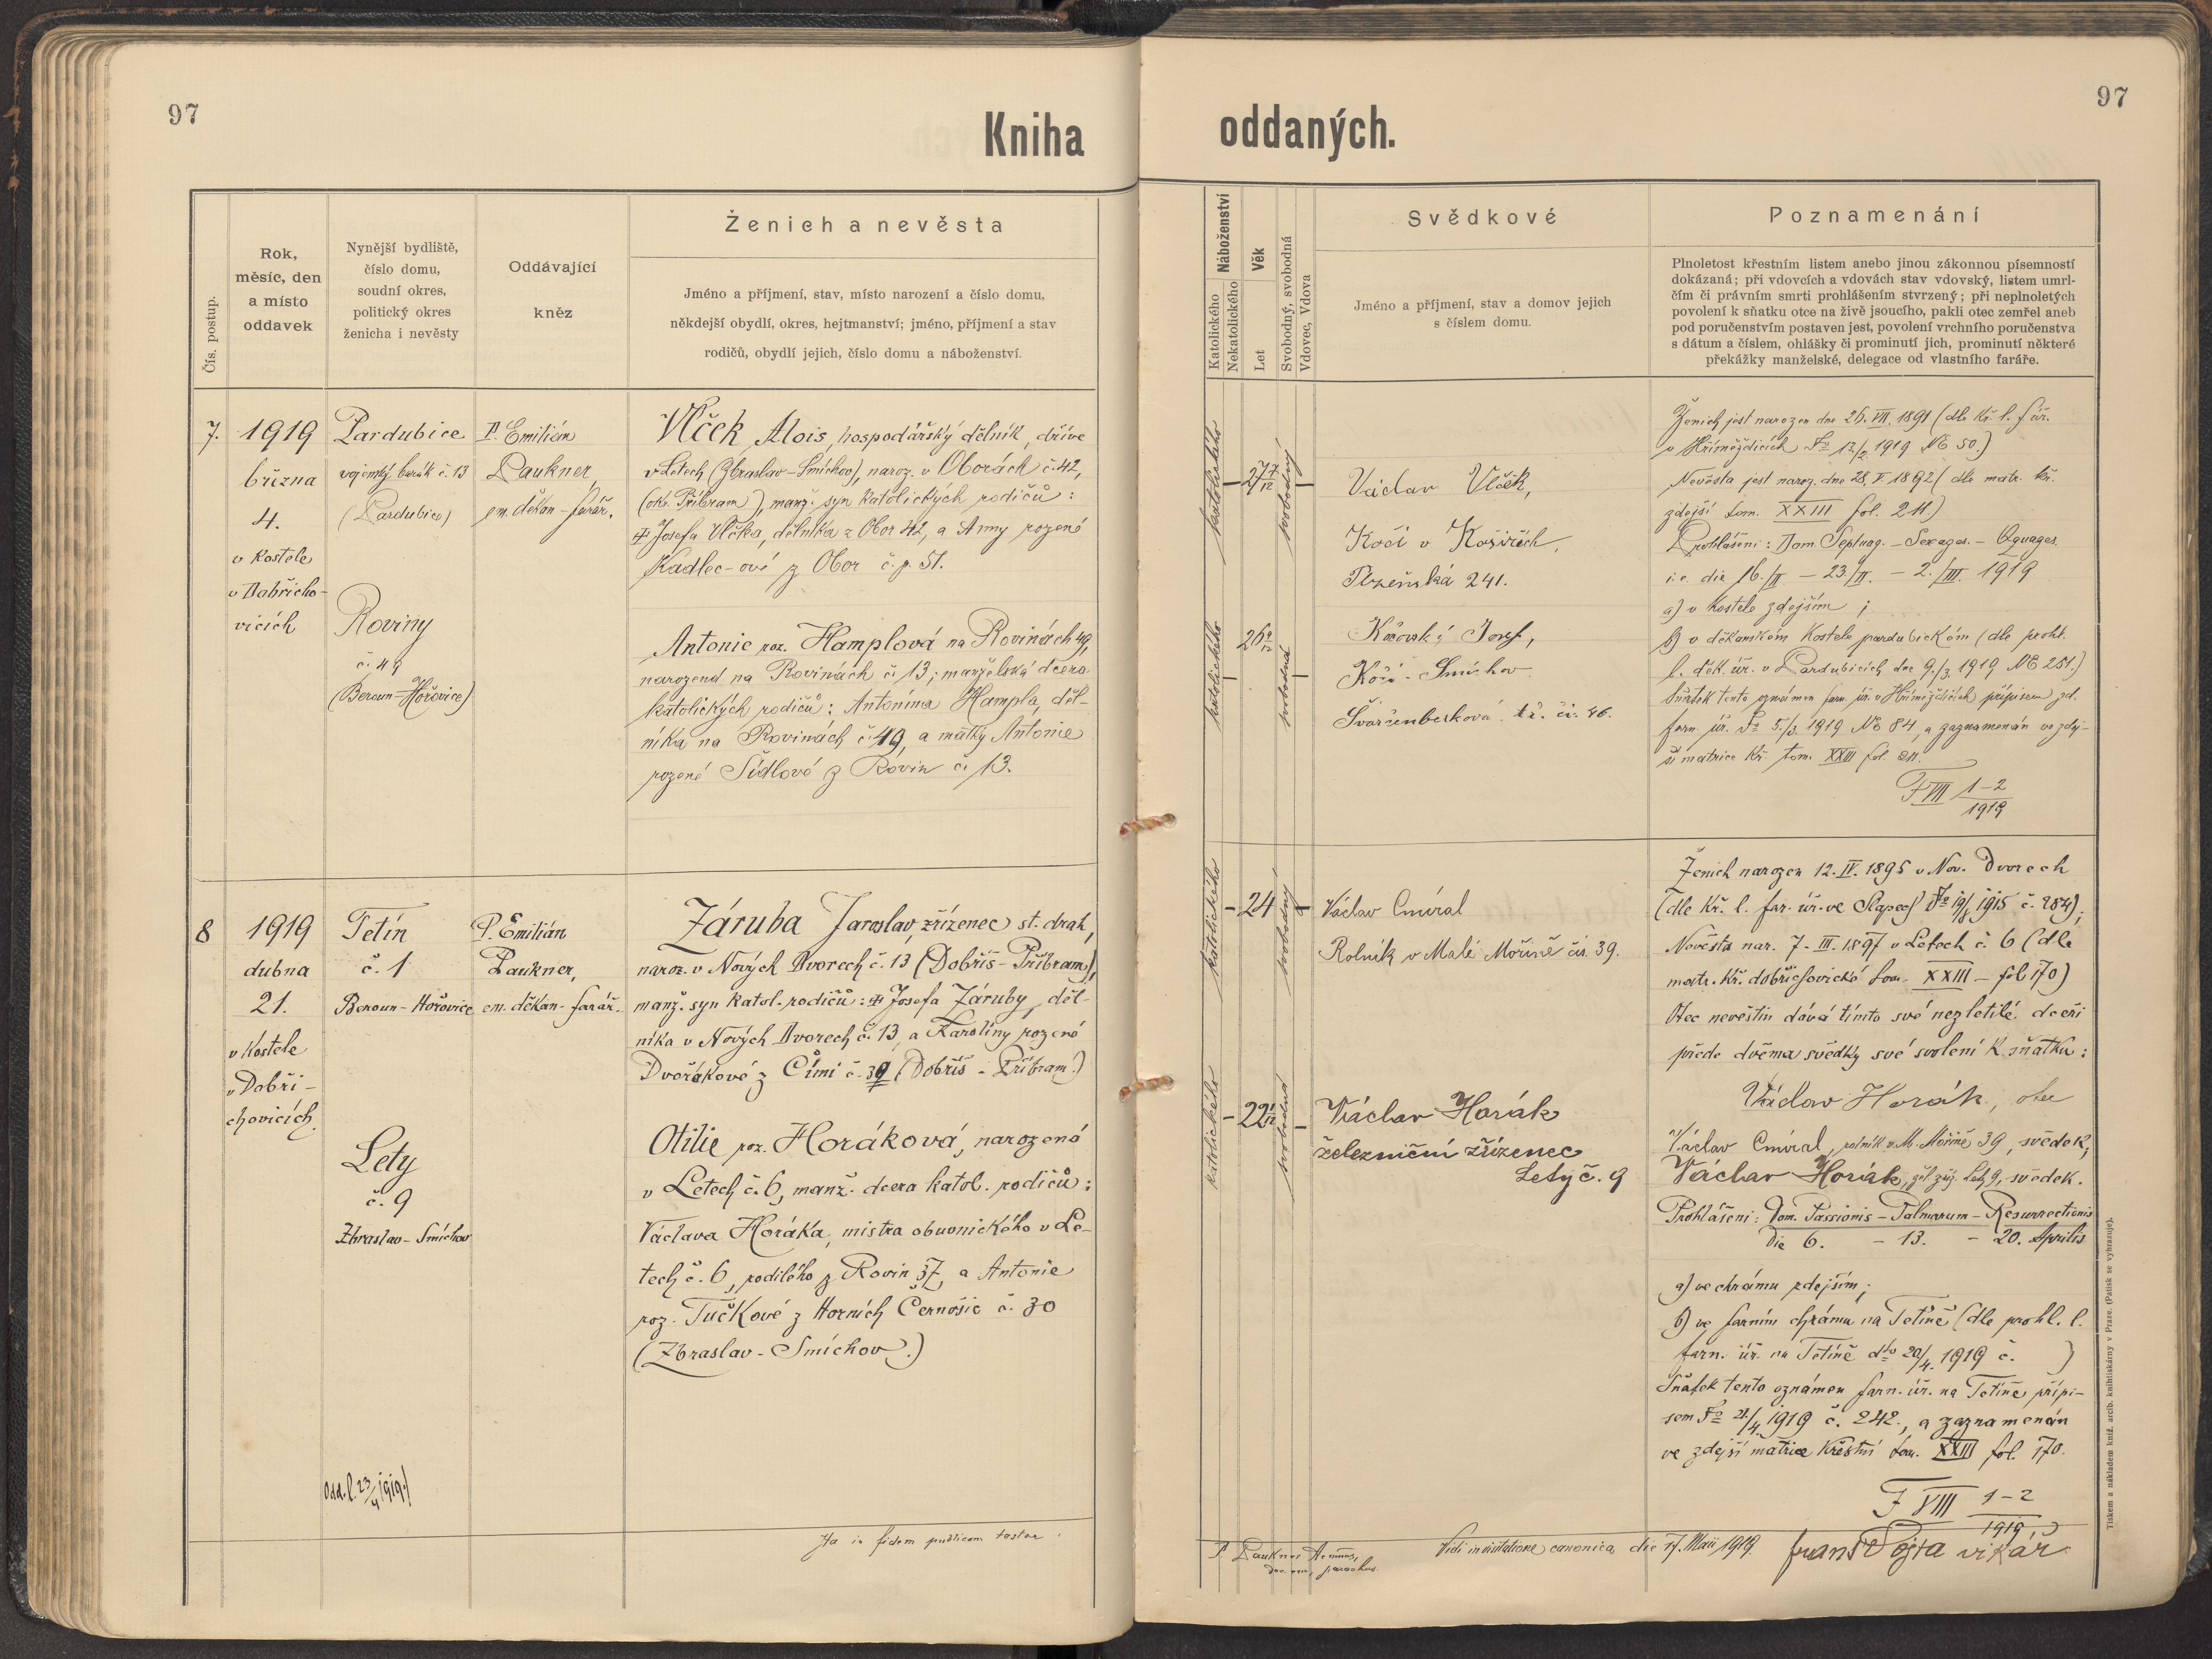 97
97
Kniha
oddaných.
Čís. postup.
Rok,
měsíc, den
a místo
oddavek
Nynější bydliště,
číslo domu,
soudní okres,
politický okres
ženicha i nevěsty
Oddávající
kněz
Ženich a nevěsta
Jméno a příjmení, stav, místo narození a číslo domu,
někdejší obydlí, okres, hejtmanství; jméno, příjmení a stav
rodičů, obydlí jejich, číslo domu a náboženství.
Náboženství
Katolického
Nekatolického
Věk
Let
Svobodný, svobodná
Vdovec, Vdova
Svědkové
Jméno a příjmení, stav a domov jejich
s číslem domu.
Poznamenání
Plnoletost křestním listem anebo jinou zákonnou písemností
dokázaná; při vdovcích a vdovách stav vdovský, listem umrl-
čím či právním smrti prohlášením stvrzený; při neplnoletých
povolení k sňatku otce na živě jsoucího, pakli otec zemřel aneb
pod poručenstvím postaven jest, povolení vrchního poručenstva
s dátum a číslem, ohlášky či prominutí jich, prominutí některé
překážky manželské, delegace od vlastního faráře.
7.
1919
března
4.
v kostele
v Dobřicho-
vicích
Pardubice
vojenský barák č. 13
(Pardubice)
Roviny
č. 49
(Beroun-Hořovice)
P. Emilián
Paukner,
em. děkan-farář.
Vlček Alois, hospodářský dělník, dříve
v Letech (Zbraslav-Smíchov), naroz. v Oborách č. 42,
(okr. Příbram), manž. syn katolických rodičů:
Josefa Vlčka, dělníka z Obor 42, a Anny rozené
Kadlec-ové z Obor č. p. 51.
Antonie roz. Hamplová na Rovinách 49,
narozená na Rovinách č. 13; manželská dcera
katolických rodičů: Antonína Hampla, děl-
níka na Rovinách č. 49, a matky Antonie
rozené Šídlové z Rovin č. 13.
katolického
27 7/12
svobodný
katolického
26 9/12
svobodná
Václav Vlček,
Kočí v Košířích,
Plzeňská 241.
Josef,
Kočí - Smíchov
Švarcenberková tř. čí. 46.
Ženich jest narozen dne 26. VII. 1891 (dle kř. l. far.
v Hříměždicích 12./2 1919 № 50.)
Nevěsta jest naroz. dne 28. V. 1892 (dle matr. kř.
zdejší tom. XXIII fol. 211.)
Prohlášení: Dom. Septuag. - Sexages. - Qquages.
i. e. die 16./II. - 23./II. - 2./III. 1919
a) v kostele zdejším;
b) v děkanském kostele pardubickém (dle prohl.
l. děk. úř. v Pardubicích dne 9./3. 1919 № 251.)
Sňatek tento oznámen farn. úř. v Hříměždicích přípisem zd.
farn. úř. 5./3. 1919 № 84, a zaznamenán ve zdej-
ší matrice kř. tom. XXIII fol 211.
F VIII 1-2
1919
8
1919
dubna
21.
v kostele
v Dobři-
chovicích.
Tetín
č. 1
Beroun-Hořovice
Lety
č. 9
Zbraslav-Smíchov
Odd. l. 23/4 1919.
P. Emilián
Paukner,
em. děkan-farář.
Záruba Jaroslav, zřízenec st. drah,
naroz. v Nových Dvorech č. 13 (Dobříš-Příbram),
manž. syn katol. rodičů: Josefa Záruby, děl-
níka v Nových Dvorech č. 13, a Karolíny rozené
Dvořákové z Čími č. 39 (Dobříš - Příbram.)
Otilie roz. Horáková, narozená
v Letech č. 6, manž. dcera katol. rodičů:
Václava Horáka, mistra obuvnického v Le-
tech č. 6, rodilého z Rovin 37, a Antonie
roz. Tučkové z Horních Černošic č. 30
(Zbraslav-Smíchov.)
katolického
24
svobodný
katolického
22 1/12
svobodná
Václav Cmíral
Rolník v Malé Mořině čís. 39.
Václav Horák
železniční zřízenec
Lety č. 9
Ženich narozen 12. IV. 1895 v Nov. Dvorech
(dle kř. l. far. úř. ve Slapech 1915 č. 284);
Nevěsta nar. 7. III. 1897 v Letech č. 6 (dle
matr. kř. dobřichovické tom. XXIII - fol 170)
Otec nevěstin dává tímto své nezletilé dceři
přede dvěma svědky své svolení k sňatku:
Václav Horák, otec
Václav Cmíral, rolník v M. Mořině 39, svědek,
Václav Horák, žel. zříz. Lety 9, svědek.
Prohlášení: Dom. Passionis - Palmarum - Resurrectionis
Die 6. - 13. - 20. Aprilis
a) ve chrámu zdejším;
b) ve farním chrámu na Tetíně (dle prohl. l.
farn. úř. na Tetíně dto 20/4. 1919 č. )
Sňatek tento oznámen farn. úř. na Tetíně přípi-
sem 21/4. 1919 č. 242., a zaznamenán
ve zdejší matrice křestní tom. XXIII fol. 170.
F VIII 1-2
1919
Ita in fidem publicam testor
P. Paukner
parochus.
Vidi in visitatione canonica die 17. Maii 1919.
vikář
Tiskem a nákladem kníž. arcib. knihtiskárny v Praze. (Patisk se vyhrazuje).